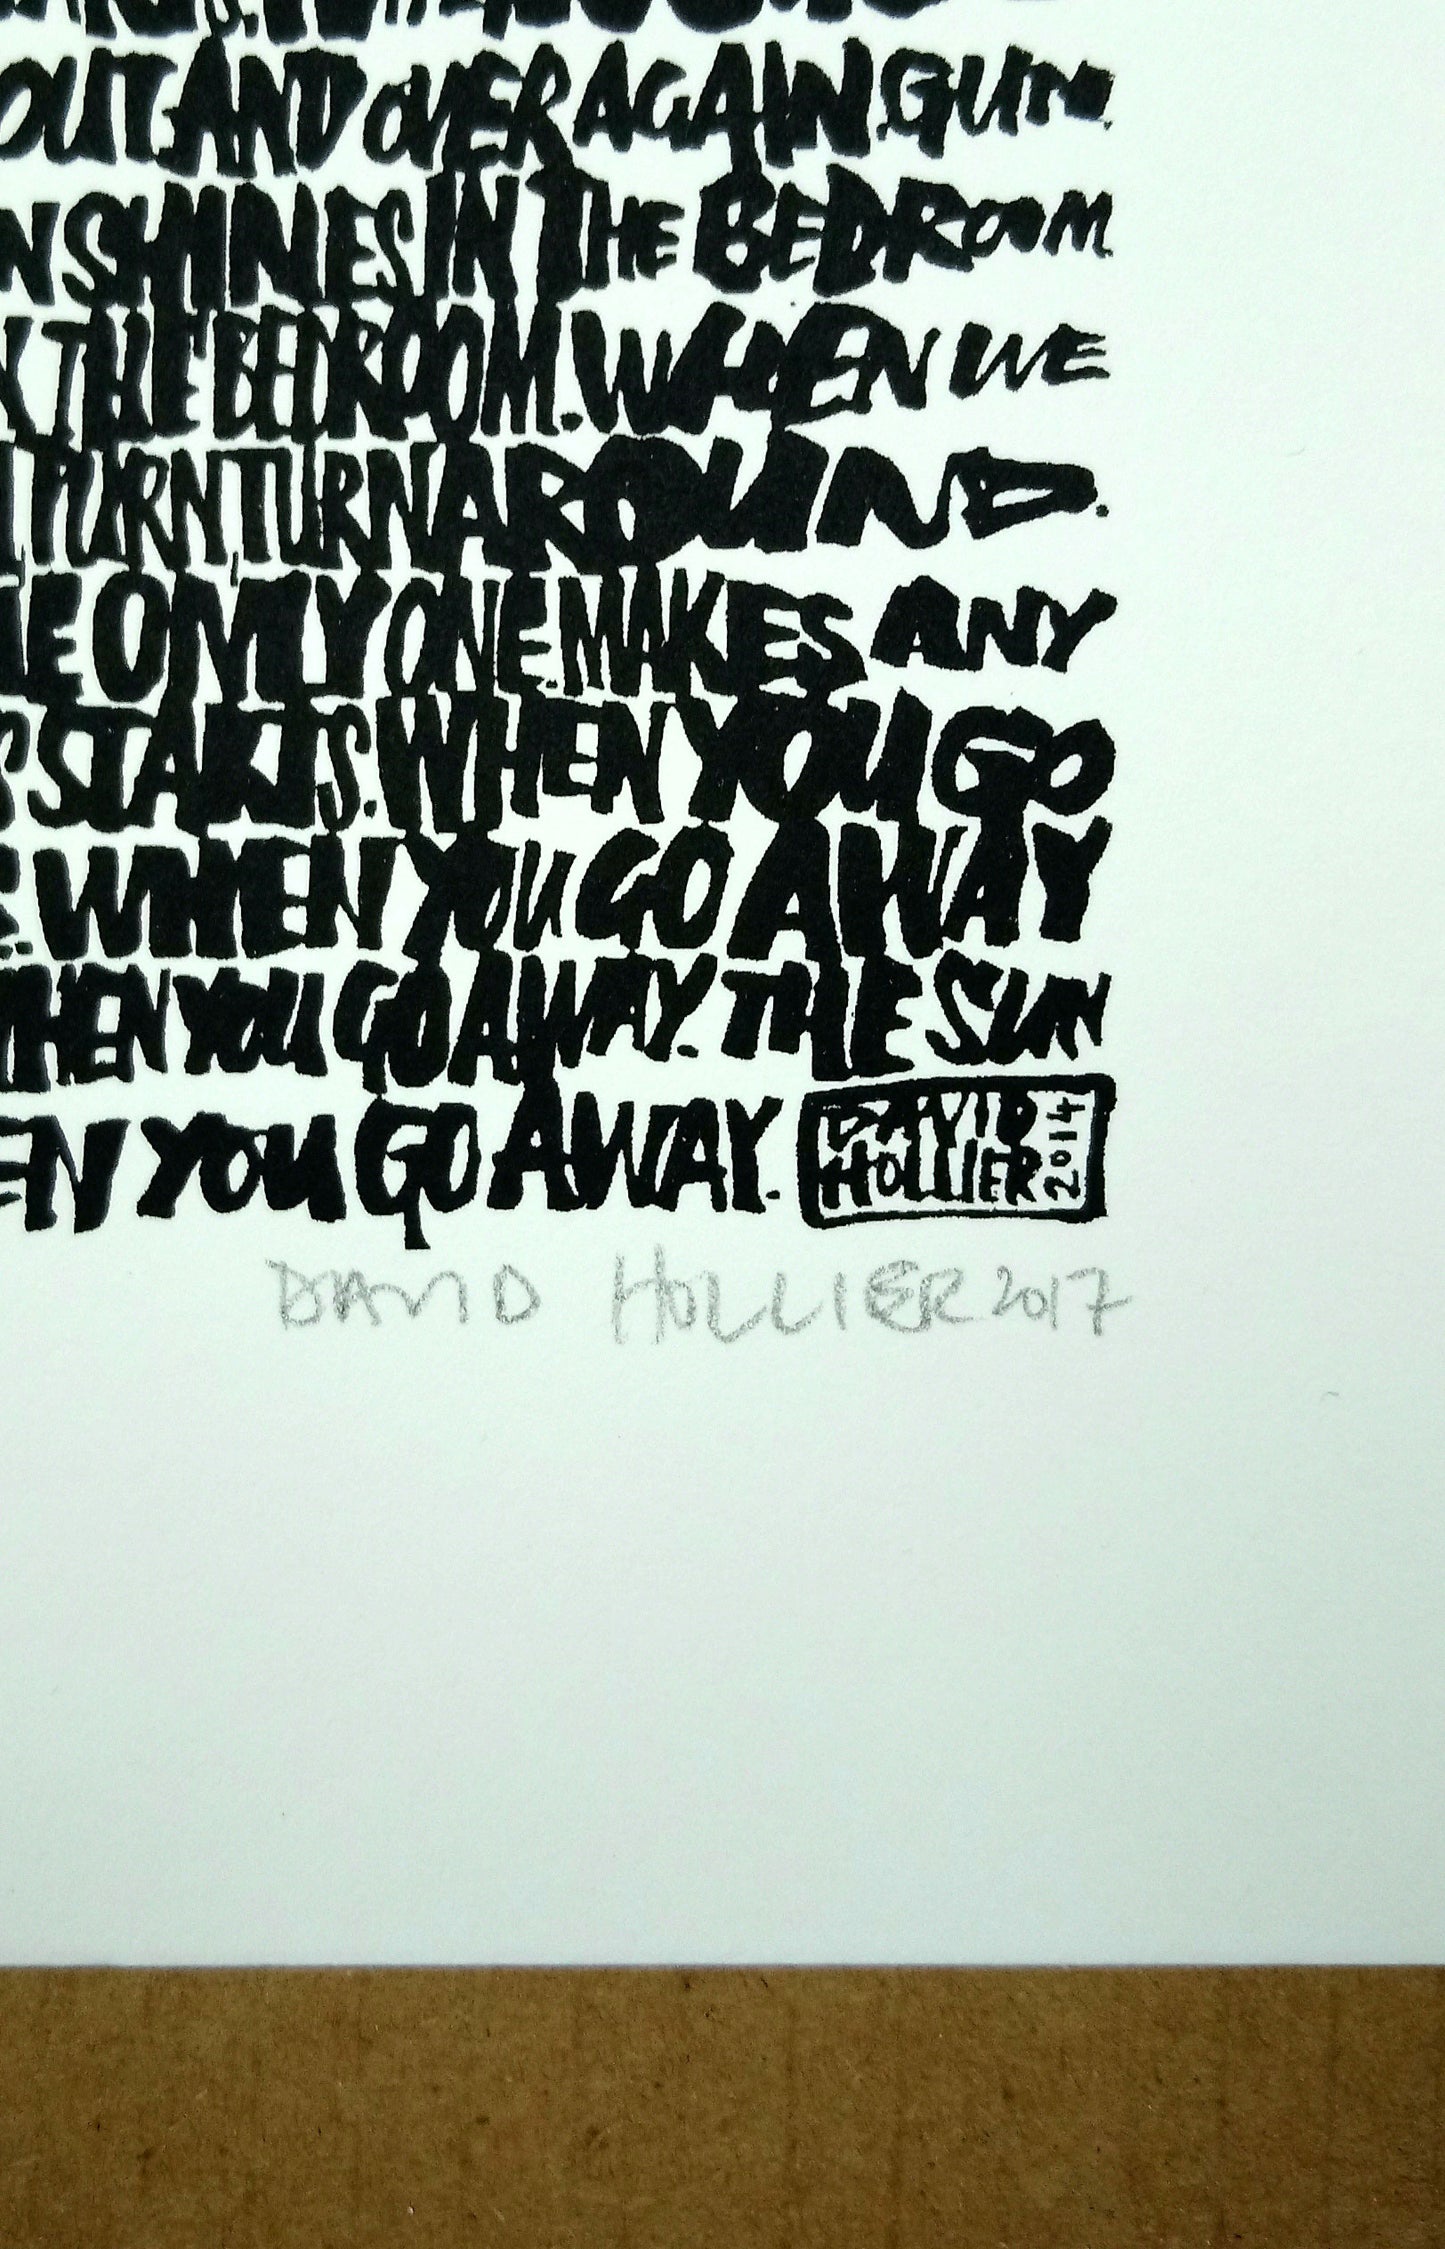 OUT. AND OVER AGAIN. GUN.
N SHINES IN THE BEDROOM
THE BEDROOM. WHEN WE
TURN TURN AROUND.
E ONLY ONE. MAKES ANY
S STARTS. WHEN YOU GO
WHEN YOU GO AWAY
WHEN YOU GO AWAY. THE SUN
EN YOU GO AWAY. DAVID HOLLIER 2014
DAVID HOLLIER 2017